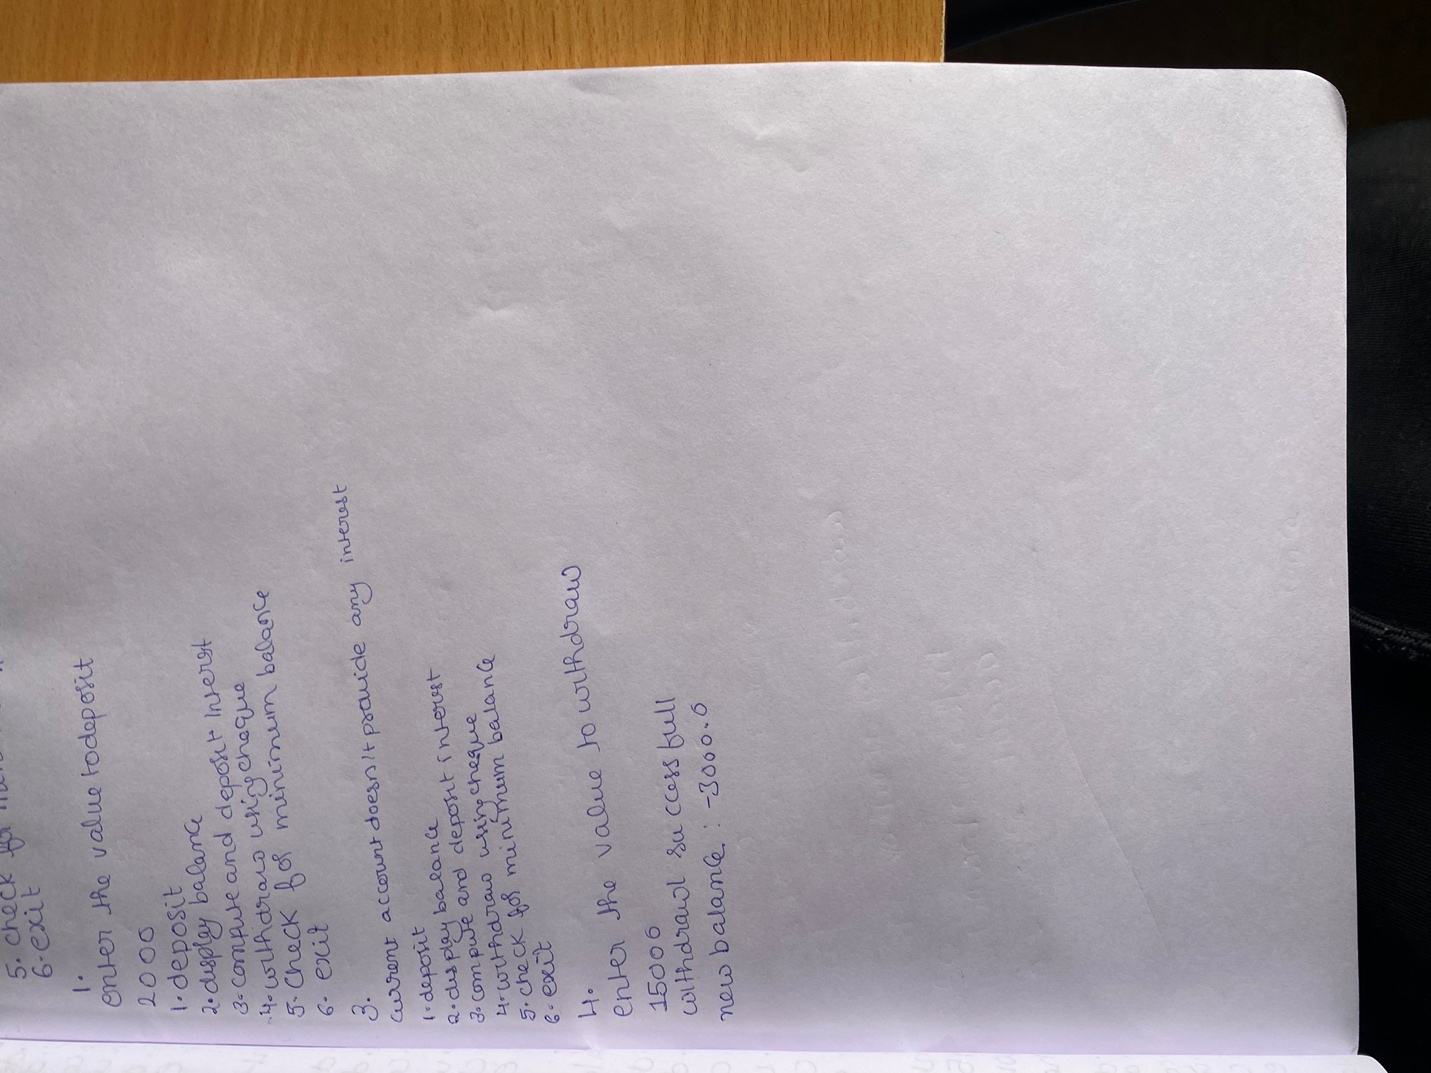 5. check for
6. exit
1.
enter the value todeposit
2000
1. deposit
2. display balance
3. compute and deposit Interst
4. withdraw using cheque
5. Check for minimum balance
6. exit
3.
current account doesn't provide any interest
1. deposit
2. display balance
3. compute and deposit interest
4. withdraw using cheque
5. check for minimum balance
6. exit
4.
enter the value to withdraw
15000
withdrawl successfull
new balance : -3000.0